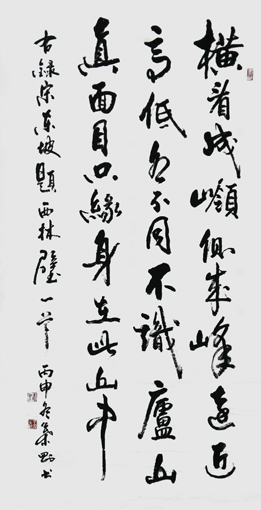 橫看成嶺側成峰遠近
高低各不同不識廬山
真面目只緣身在此山中
古錄宋東坡題西林壁一首 丙申冬 秦野書